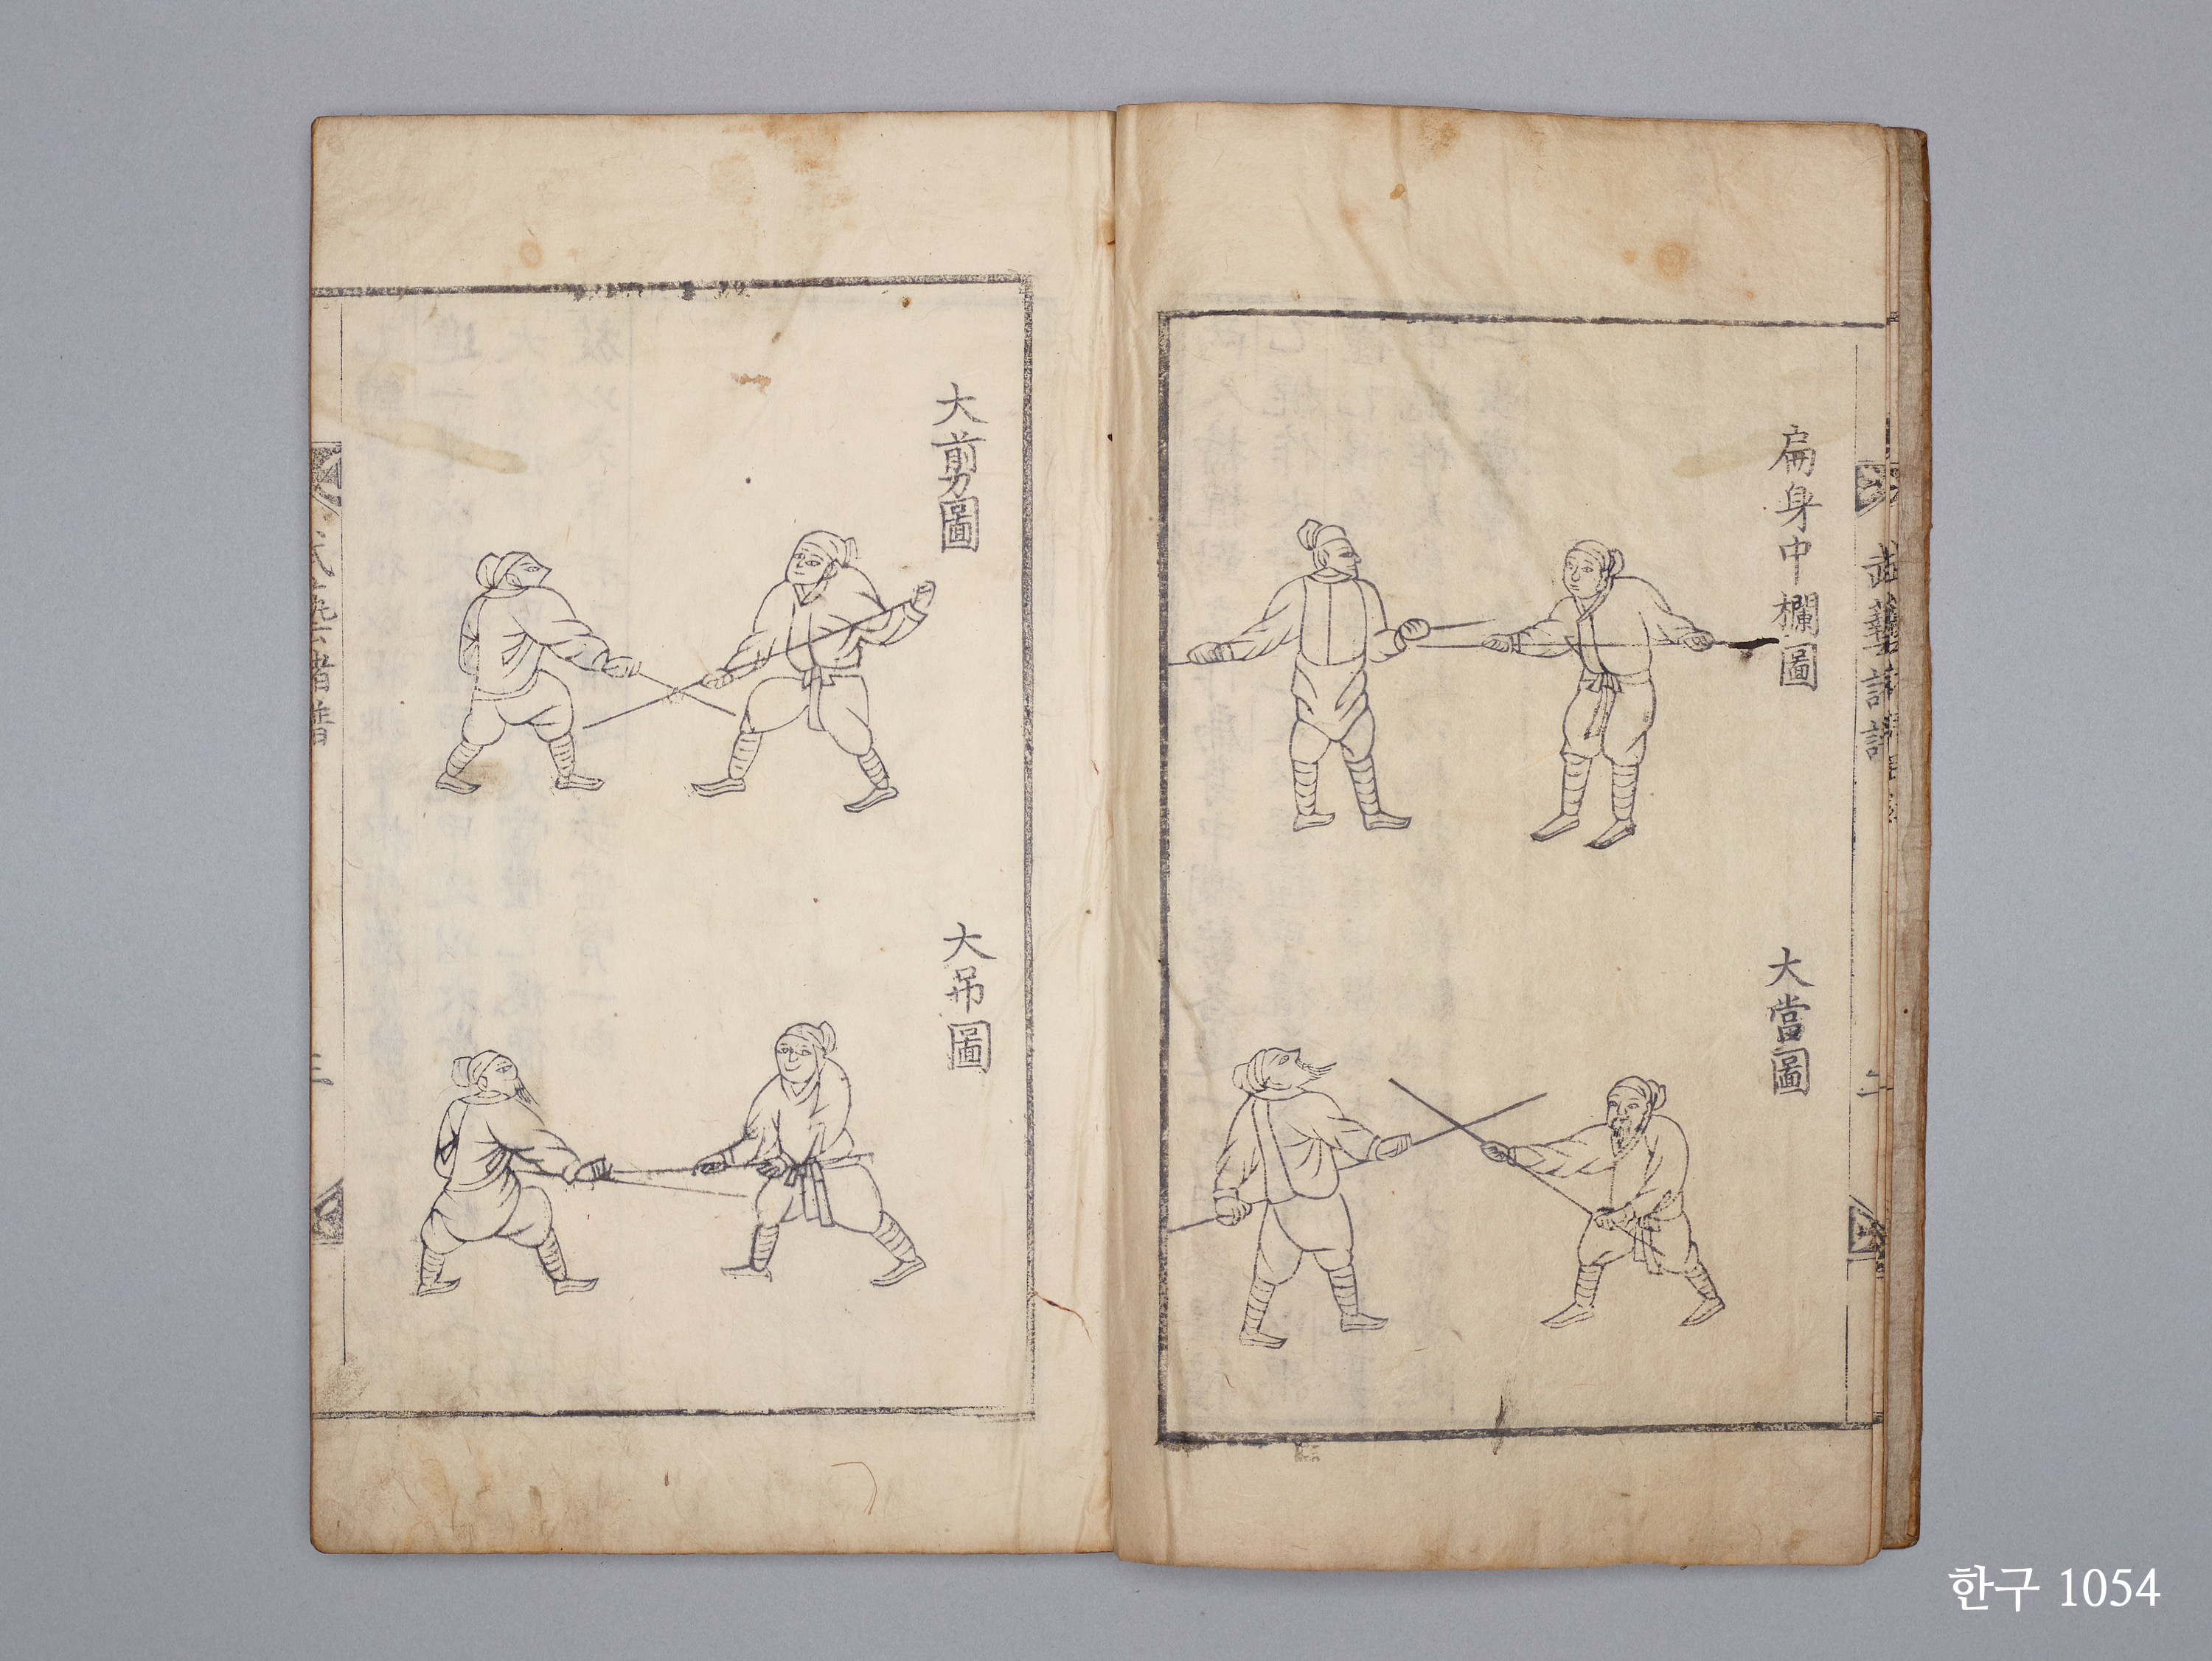 扁身中欄圖
大當圖
武藝諸譜
二
大剪圖
大吊圖
三
한구 1054